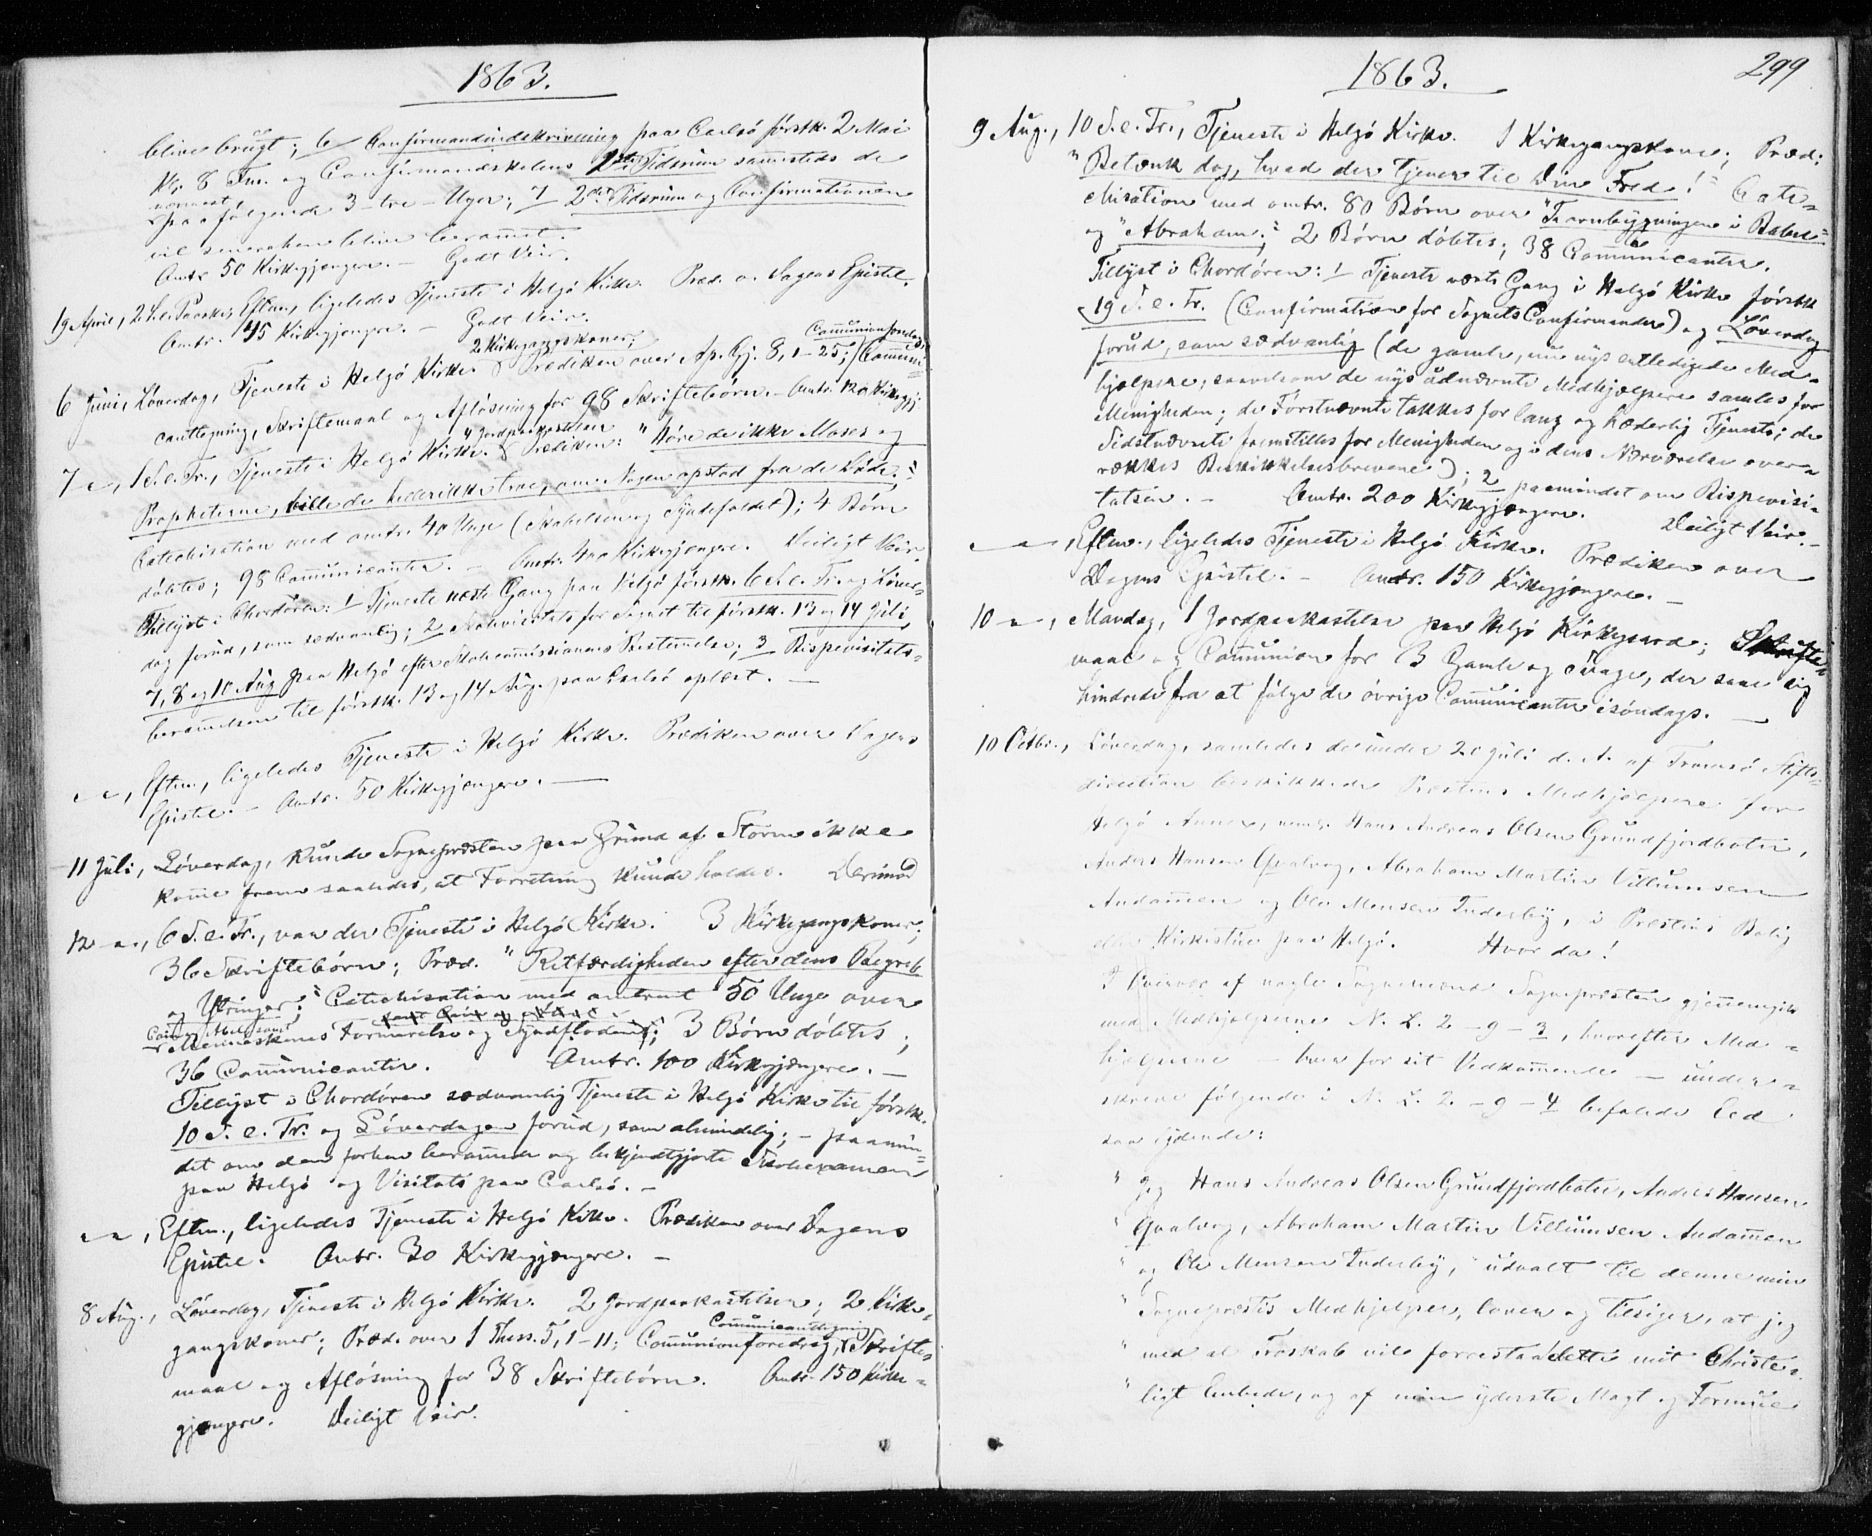 1863.
blive brugt; 6 Confirmandindskrivning paa Carlsö förstk. 2 Mai
Kl. 8 Fm. og Confirmandskolens 1ste Tidsrum sammesteds de
nærmest
paafölgende 3 - tre - Uger; 7 2det Tidsrum og Confirmationen
vil senerehen blive berammet.
Omtr. 50 Kirkegjængere. — Godt Veir.
19 April, 2 S. e. Paaske, Eftm., ligeledes Tjeneste i Helgö Kirke. Præd. o. Dagens Epistel.
Omtr. 145 Kirkegjængere. — Godt Veir.
2 Kirkegangskoner; Communionforedrag
6 Juni, Löverdag, Tjeneste i Helgö Kirke. Prædiken over Ap. Gj. 8, 1-25; Communi-
cantlegning, Skriftemaal og Aflösning for 98 Skriftebörn. — Omtr. 120 Kirkegj.
4 Jordpaakastelser
7 — , 1 S. e. Tr., Tjeneste i Helgö Kirke. Prædiken: "Höre de ikke Moses og
Propheterne, ville de heller ikke troe, om Nogen opstod fra de Döde;"
Catechisation med omtr. 40 Unge (Skabelsen og Syndefaldet); 4 Börn
döbtes; 98 Communicanter. — Omtr. 400 Kirkegjængere. Deiligt Veir.
Tillyst i Chordören: 1 Tjeneste næste Gang paa Helgö förstk. 6 S. e. Tr. og Löver-
dag forud, som sædvanlig; 2 Skolevisitats for Sognet til förstk. 13 og 14 Juli,
7, 8 og 10 Aug. paa Helgö efter Skolecommissionens Bestemmelse; 3 Bispevisitats-
berammelsen til förstk. 13 og 14 Aug. paa Carlsö oplæst. —
— , Eftm., ligeledes Tjeneste i Helgö Kirke. Prædiken over Dagens
Epistel. — Omtr. 50 Kirkegjængere. —
11 Juli, Löverdag, kunde Sognepræsten paa Grund af Storm ikke
komme frem saaledes, at Forretning kunde holdes. Derimod
12 — , 6 S. e. Tr., var der Tjeneste i Helgö Kirke. 3 Kirkegangskoner;
36 Skriftebörn; Præd. "Retfærdigheden efter dens Begreb
og Ytringer;" Catechisation med omtrent 50 Unge over
Cain og Abel samt
Menneskenes Fornærelse og Syndfloden; 3 Börn döbtes;
36 Communicanter. Omtr. 100 Kirkegjængere. —
Tillyst i Chordören sædvanlig Tjeneste i Helgö Kirke til förstk.
10 S. e. Tr. og Löverdagen forud, som almindelig; — paamin-
det om den forhen berammede og bekjendtgjorte Skoleexamen
paa Helgö og Visitats paa Carlsö. —
— , Eftm., ligeledes Tjeneste i Helgö Kirke. Prædiken over Dagens
Epistel. Omtr. 30 Kirkegjængere. —
8 Aug., Löverdag, Tjeneste i Helgö Kirke. 2 Jordpaakastelser; 2 Kirke-
Communicantlegning
gangskoner; Præd. over 1 Thess. 5, 1-11; Communionforedrag, Skrifte-
maal og Aflösning for 38 Skriftebörn. Omtr. 150 Kirke-
gjængere. Deiligt Veir.
1863.
299
9 Aug., 10 S. e. Tr., Tjeneste i Helgö Kirke. 1 Kirkegangskone; Præd:
"Betænk dog, hvad der tjener til Din Fred!" Cate-
chisation med omtr. 80 Börn over "Taarnbygningen i Babel"
og "Abraham;" 2 Börn döbtes; 38 Communicanter.
Tillyst i Chordören: 1 Tjeneste næste Gang i Helgö Kirke förstk.
19 S. e. Tr. (Confirmation for Sognets Confirmander) og Löverdag
forud, som sædvanlig (de gamle, nu nys entledigede Med-
hjælpere, saavelsom de nys udnævnte Medhjælpere samles for
Menigheden; de Förstnævnte takkes for lang og hæderlig Tjeneste; de
Sidstnævnte fremstilles for Menigheden og i dens Nærværelse over-
rækkes Beskikkelsesbrevene); 2 paamindet om Bispevisi-
tatsen. — Omtr. 200 Kirkegjængere. Deiligt Veir. —
— , Eftm., ligeledes Tjeneste i Helgö Kirke. Prædiken over
Dagens Epistel. — Omtr. 150 Kirkegjængere. —
10 — , Mandag, 1 Jordpaakastelse paa Helgö Kirkegaard; Skrifte-
maal og Communion for 3 Gamle og Svage, der saae sig
hindrede fra at fölge de övrige Communicanter isöndags. —
10 Octbr., Löverdag, samledes de under 20 Juli d. A. af Tromsö Stifts-
direction beskikkede Præstens Medhjælpere for
Helgö Annex, neml. Hans Andreas Olsen Grundfjordbotn,
Anders Hansen Qvalvog, Abraham Martin Villumsen
Andammen og Ole Monsen Inderby, i Præstens Bolig
eller Kirkestue paa Helgö. Hvor da!
I Nærvær af nogle Sognemænd Sognepræsten gjennemgik
med Medhjælperne N. L. 2 - 9 - 3, hvorefter Med-
hjelperne — hver for sit Vedkommende — under-
skreve fölgende i N. L. 2 - 9 - 4 befalede Eed
saa lydende:
" Jeg Hans Andreas Olsen Grundfjordbotn, Anders Hansen
" Qvalvog, Abraham Martin Villumsen Andammen
" og Ole Monsen Inderby, udvalt til denne min
" Sognepræstes Medhjelper, lover og tilsiger, at jeg
" med al Troskab vil forrestaa dette mit Christe-
" ligt Embede, og af min yderste Magt og Formue